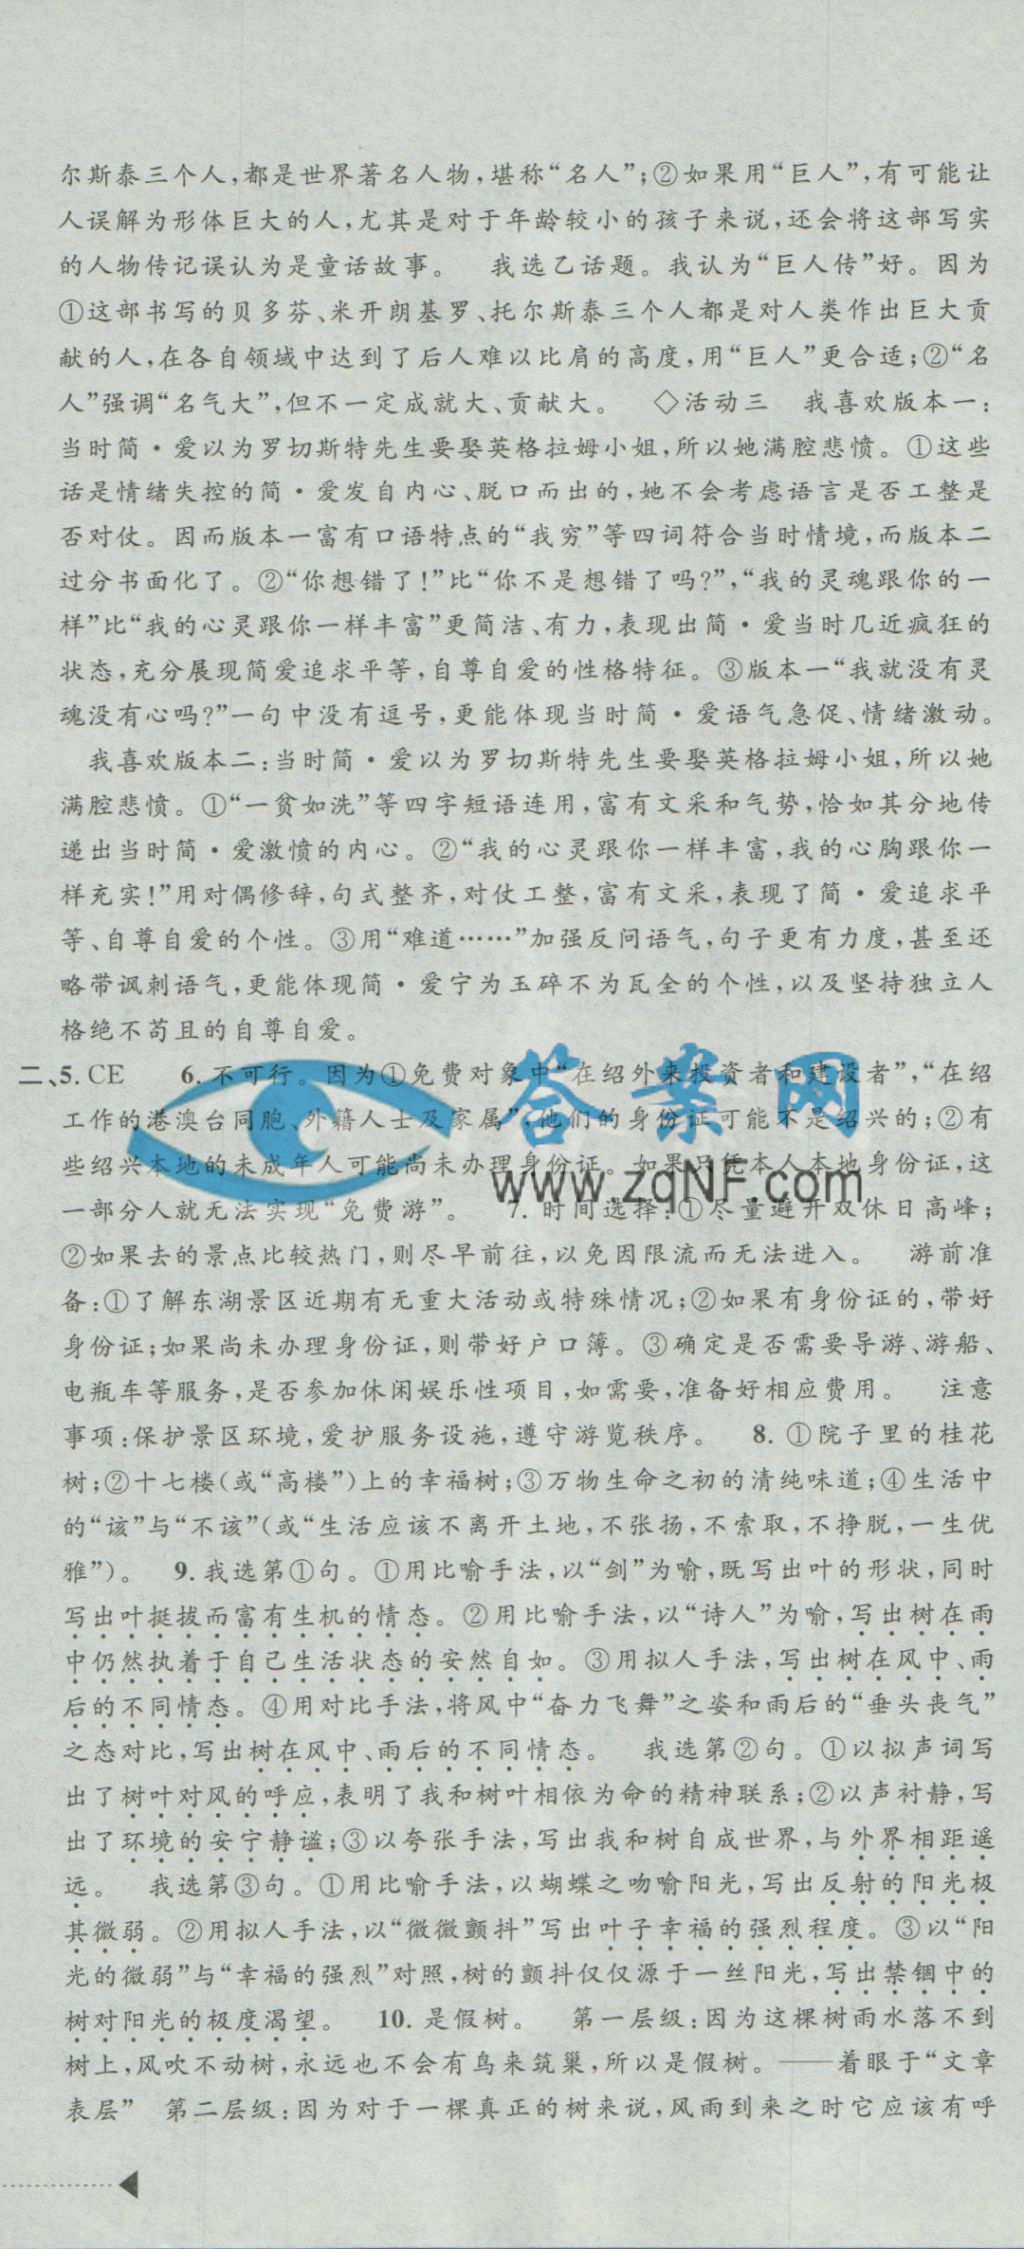 尔斯泰三个人,都是世界著名人物,堪称“名人”;②如果用“巨人”,有可能让
人误解为形体巨大的人,尤其是对于年龄较小的孩子来说,还会将这部写实
的人物传记误认为是童话故事。 我选乙话题。我认为“巨人传”好。因为
①这部书写的贝多芬、米开朗基罗、托尔斯泰三个人都是对人类作出巨大贡
献的人,在各自领域中达到了后人难以比肩的高度,用“巨人”更合适;②“名
人”强调“名气大”,但不一定成就大、贡献大。 ◇活动三 我喜欢版本一:
当时简·爱以为罗切斯特先生要娶英格拉姆小姐,所以她满腔悲愤。①这些
话是情绪失控的简·爱发自内心、脱口而出的,她不会考虑语言是否工整是
否对仗。因而版本一富有口语特点的“我穷”等四词符合当时情境,而版本二
过分书面化了。②“你想错了!”比“你不是想错了吗?”,“我的灵魂跟你的一
样”比“我的心灵跟你一样丰富”更简洁、有力,表现出简·爱当时几近疯狂的
状态,充分展现简爱追求平等,自尊自爱的性格特征。③版本一“我就没有灵
魂没有心吗?”一句中没有逗号,更能体现当时简·爱语气急促、情绪激动。
我喜欢版本二:当时简·爱以为罗切斯特先生要娶英格拉姆小姐,所以她
满腔悲愤。①“一贫如洗”等四字短语连用,富有文采和气势,恰如其分地传
递出当时简·爱激愤的内心。②“我的心灵跟你一样丰富,我的心胸跟你一
样充实!”用对偶修辞,句式整齐,对仗工整,富有文采,表现了简·爱追求平
等、自尊自爱的个性。③用“难道……”加强反问语气,句子更有力度,甚至还
略带讽刺语气,更能体现简·爱宁为玉碎不为瓦全的个性,以及坚持独立人
格绝不苟且的自尊自爱。
二、5. CE 6. 不可行。因为①免费对象中“在绍外来投资者和建设者”,“在绍
工作的港澳台同胞、外籍人士及家属”,他们的身份证可能不是绍兴的;②有
些绍兴本地的未成年人可能尚未办理身份证。如果只凭本人本地身份证,这
一部分人就无法实现“免费游”。 7. 时间选择:①尽量避开双休日高峰;
②如果去的景点比较热门,则尽早前往,以免因限流而无法进入。 游前准
备:①了解东湖景区近期有无重大活动或特殊情况;②如果有身份证的,带好
身份证;如果尚未办理身份证,则带好户口簿。③确定是否需要导游、游船、
电瓶车等服务,是否参加休闲娱乐性项目,如需要,准备好相应费用。 注意
事项:保护景区环境,爱护服务设施,遵守游览秩序。 8. ①院子里的桂花
树;②十七楼(或“高楼”)上的幸福树;③万物生命之初的清纯味道;④生活中
的“该”与“不该”(或“生活应该不离开土地,不张扬,不索取,不挣脱,一生优
雅”)。 9. 我选第①句。①用比喻手法,以“剑”为喻,既写出叶的形状,同时
写出叶挺拔而富有生机的情态。②用比喻手法,以“诗人”为喻,写出树在雨
中仍然执着于自己生活状态的安然自如。③用拟人手法,写出树在风中、雨
后的不同情态。④用对比手法,将风中“奋力飞舞”之姿和雨后的“垂头丧气”
之态对比,写出树在风中、雨后的不同情态。 我选第②句。①以拟声词写
出了树叶对风的呼应,表明了我和树叶相依为命的精神联系;②以声衬静,写
出了环境的安宁静谧;③以夸张手法,写出我和树自成世界,与外界相距遥
远。 我选第③句。①用比喻手法,以蝴蝶之吻喻阳光,写出反射的阳光极
其微弱。②用拟人手法,以“微微颤抖”写出叶子幸福的强烈程度。③以“阳
光的微弱”与“幸福的强烈”对照,树的颤抖仅仅源于一丝阳光,写出禁锢中的
树对阳光的极度渴望。 10. 是假树。 第一层级:因为这棵树雨水落不到
树上,风吹不动树,永远也不会有鸟来筑巢,所以是假树。——着眼于“文章
表层” 第二层级:因为对于一棵真正的树来说,风雨到来之时它应该有呼
答案网
www.zqNF.com